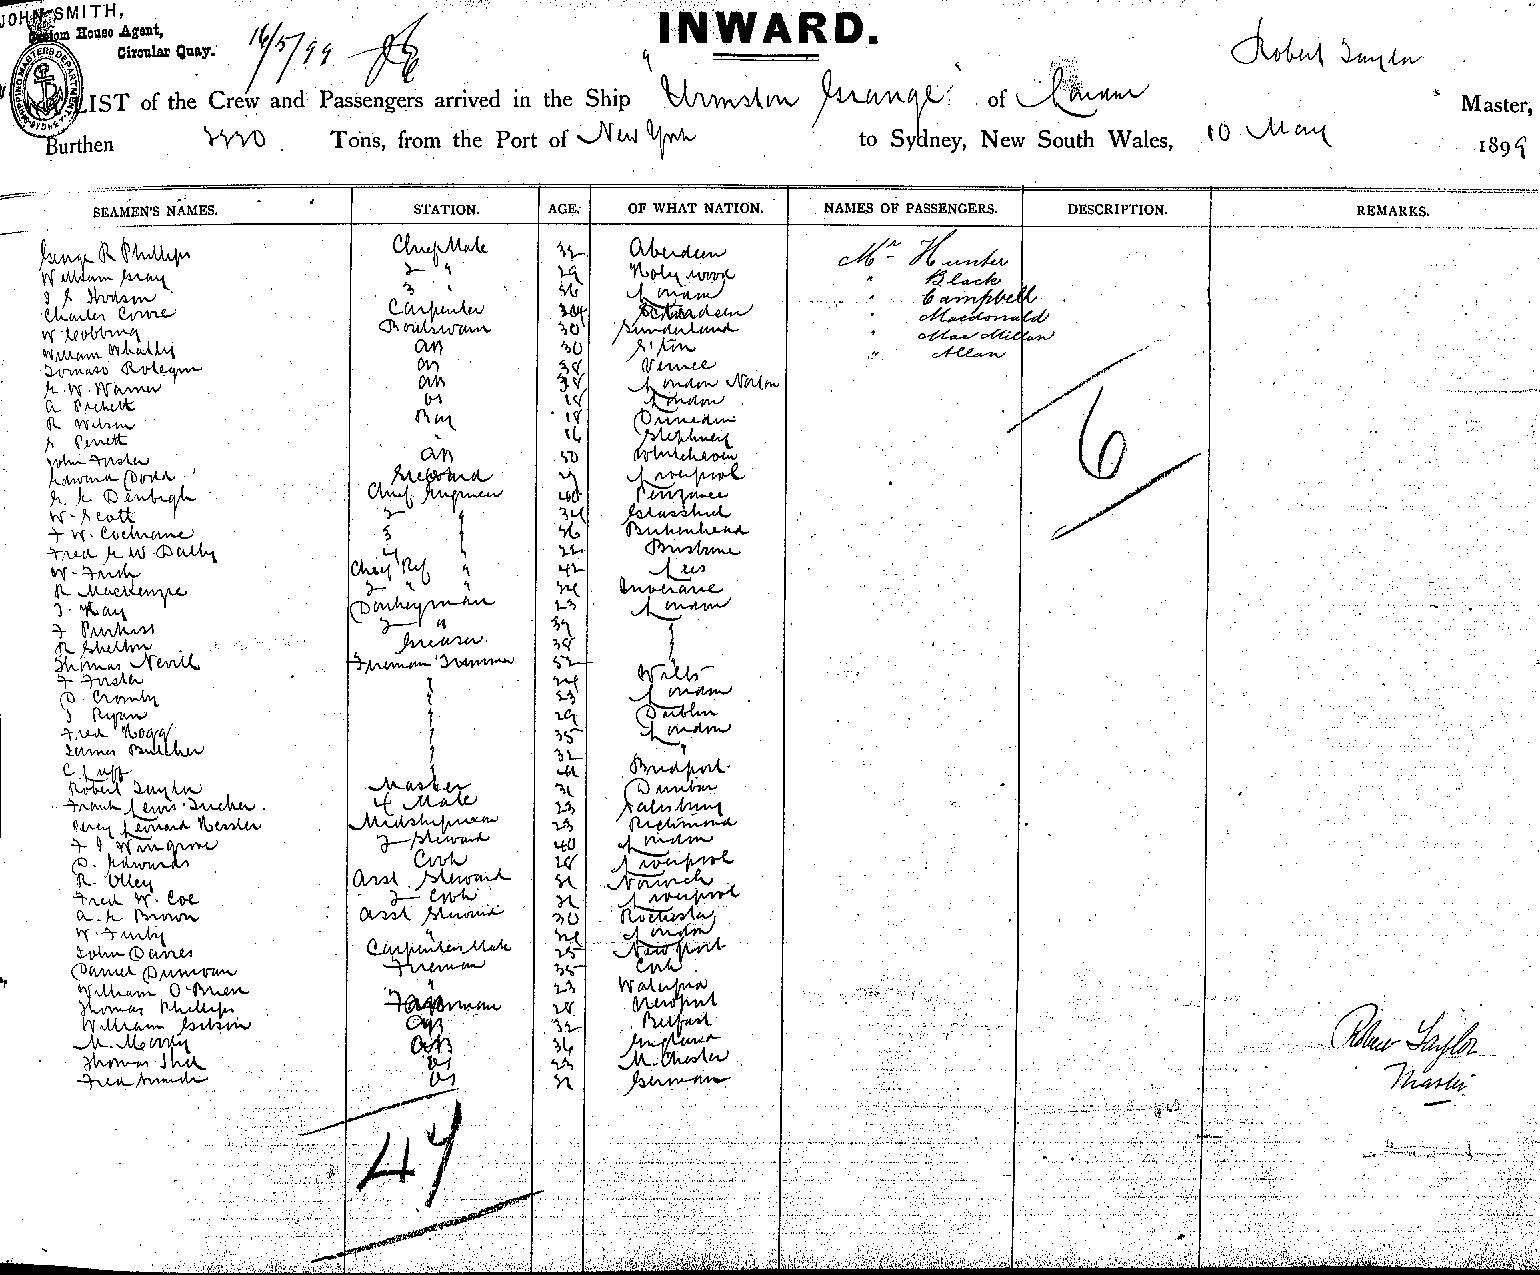 JOHN SMITH,
Custom House Agent,
Circular Quay.
16/5/99
INWARD.
Robert Taylor
LIST of the Crew and Passengers arrived in the Ship "Urmston Grange" of London Master,
Burthen Tons, from the Port of New York to Sydney, New South Wales, 10 May 1899
SEAMEN'S NAMES. STATION. AGE. OF WHAT NATION. NAMES OF PASSENGERS. DESCRIPTION. REMARKS.
George R Phillips Chief Mate 32 Aberdeen Mr Hunter
William Gray 2 " 29 Holywood " Black
Hodson 3 " 36 London " Campbell
Charles Carpenter Aberdeen " Macdonald
W Cobbing Boatswain 30 Sunderland " MacMillan
William AB 30 " Allan
Tomaso AB 38 Venice
W. Warner AB 38 London
A Pickett OS 18 London
R Wilson Boy 18 Dunedin
Perrett " 16 Stepney
John Foster AB 50 Whitehaven
Edward Dodd Steward 29 Liverpool
Denbigh Chief Engineer 40 Penzance
W. Scott 2 " 34
F W. Cochrane 3 " 36 Birkenhead
Fred W Dalby 4 " 22 Brisbane
W. Chief Ref " 42
R Mackenzie 2 " " 24
J. Kay Donkeyman 23 London
F Purkiss 2 " 39 "
R Shelton Greaser. 38 "
Thomas Nevill Fireman Trimmer 52 "
F Foster " 24 Wilts
D. Cromby " 23 London
J Ryan " 29 Dublin
Fred Hogg " 35 London
James Butcher " 32 "
C Luff " Bridport.
Robert Taylor Master 31 Dunbar
Frank Lewis Tucker. 4 Mate 23 Salisbury
Percy Leonard Kessler Midshipman 23 Richmond
F J Wingrove 2 Steward 40 London
D. Edwards Cook 28 Liverpool
R. Ulley Asst Steward 31 Norwich
Fred W. Coe 2 Cook 31 Liverpool
A. Brown Asst Steward 30 Rochester
W. Furby " 24 London
John Davies Carpenters Mate 25 Newport
Daniel Dunovan Fireman 35 Cork
William O'Brien " 23
Thomas Phillips 28 Newport
William Gibson AB 32 Belfast
M. AB 36 England
Thomas OS 23 M.Chester
Fred OS German
6
Robert Taylor
Master
47